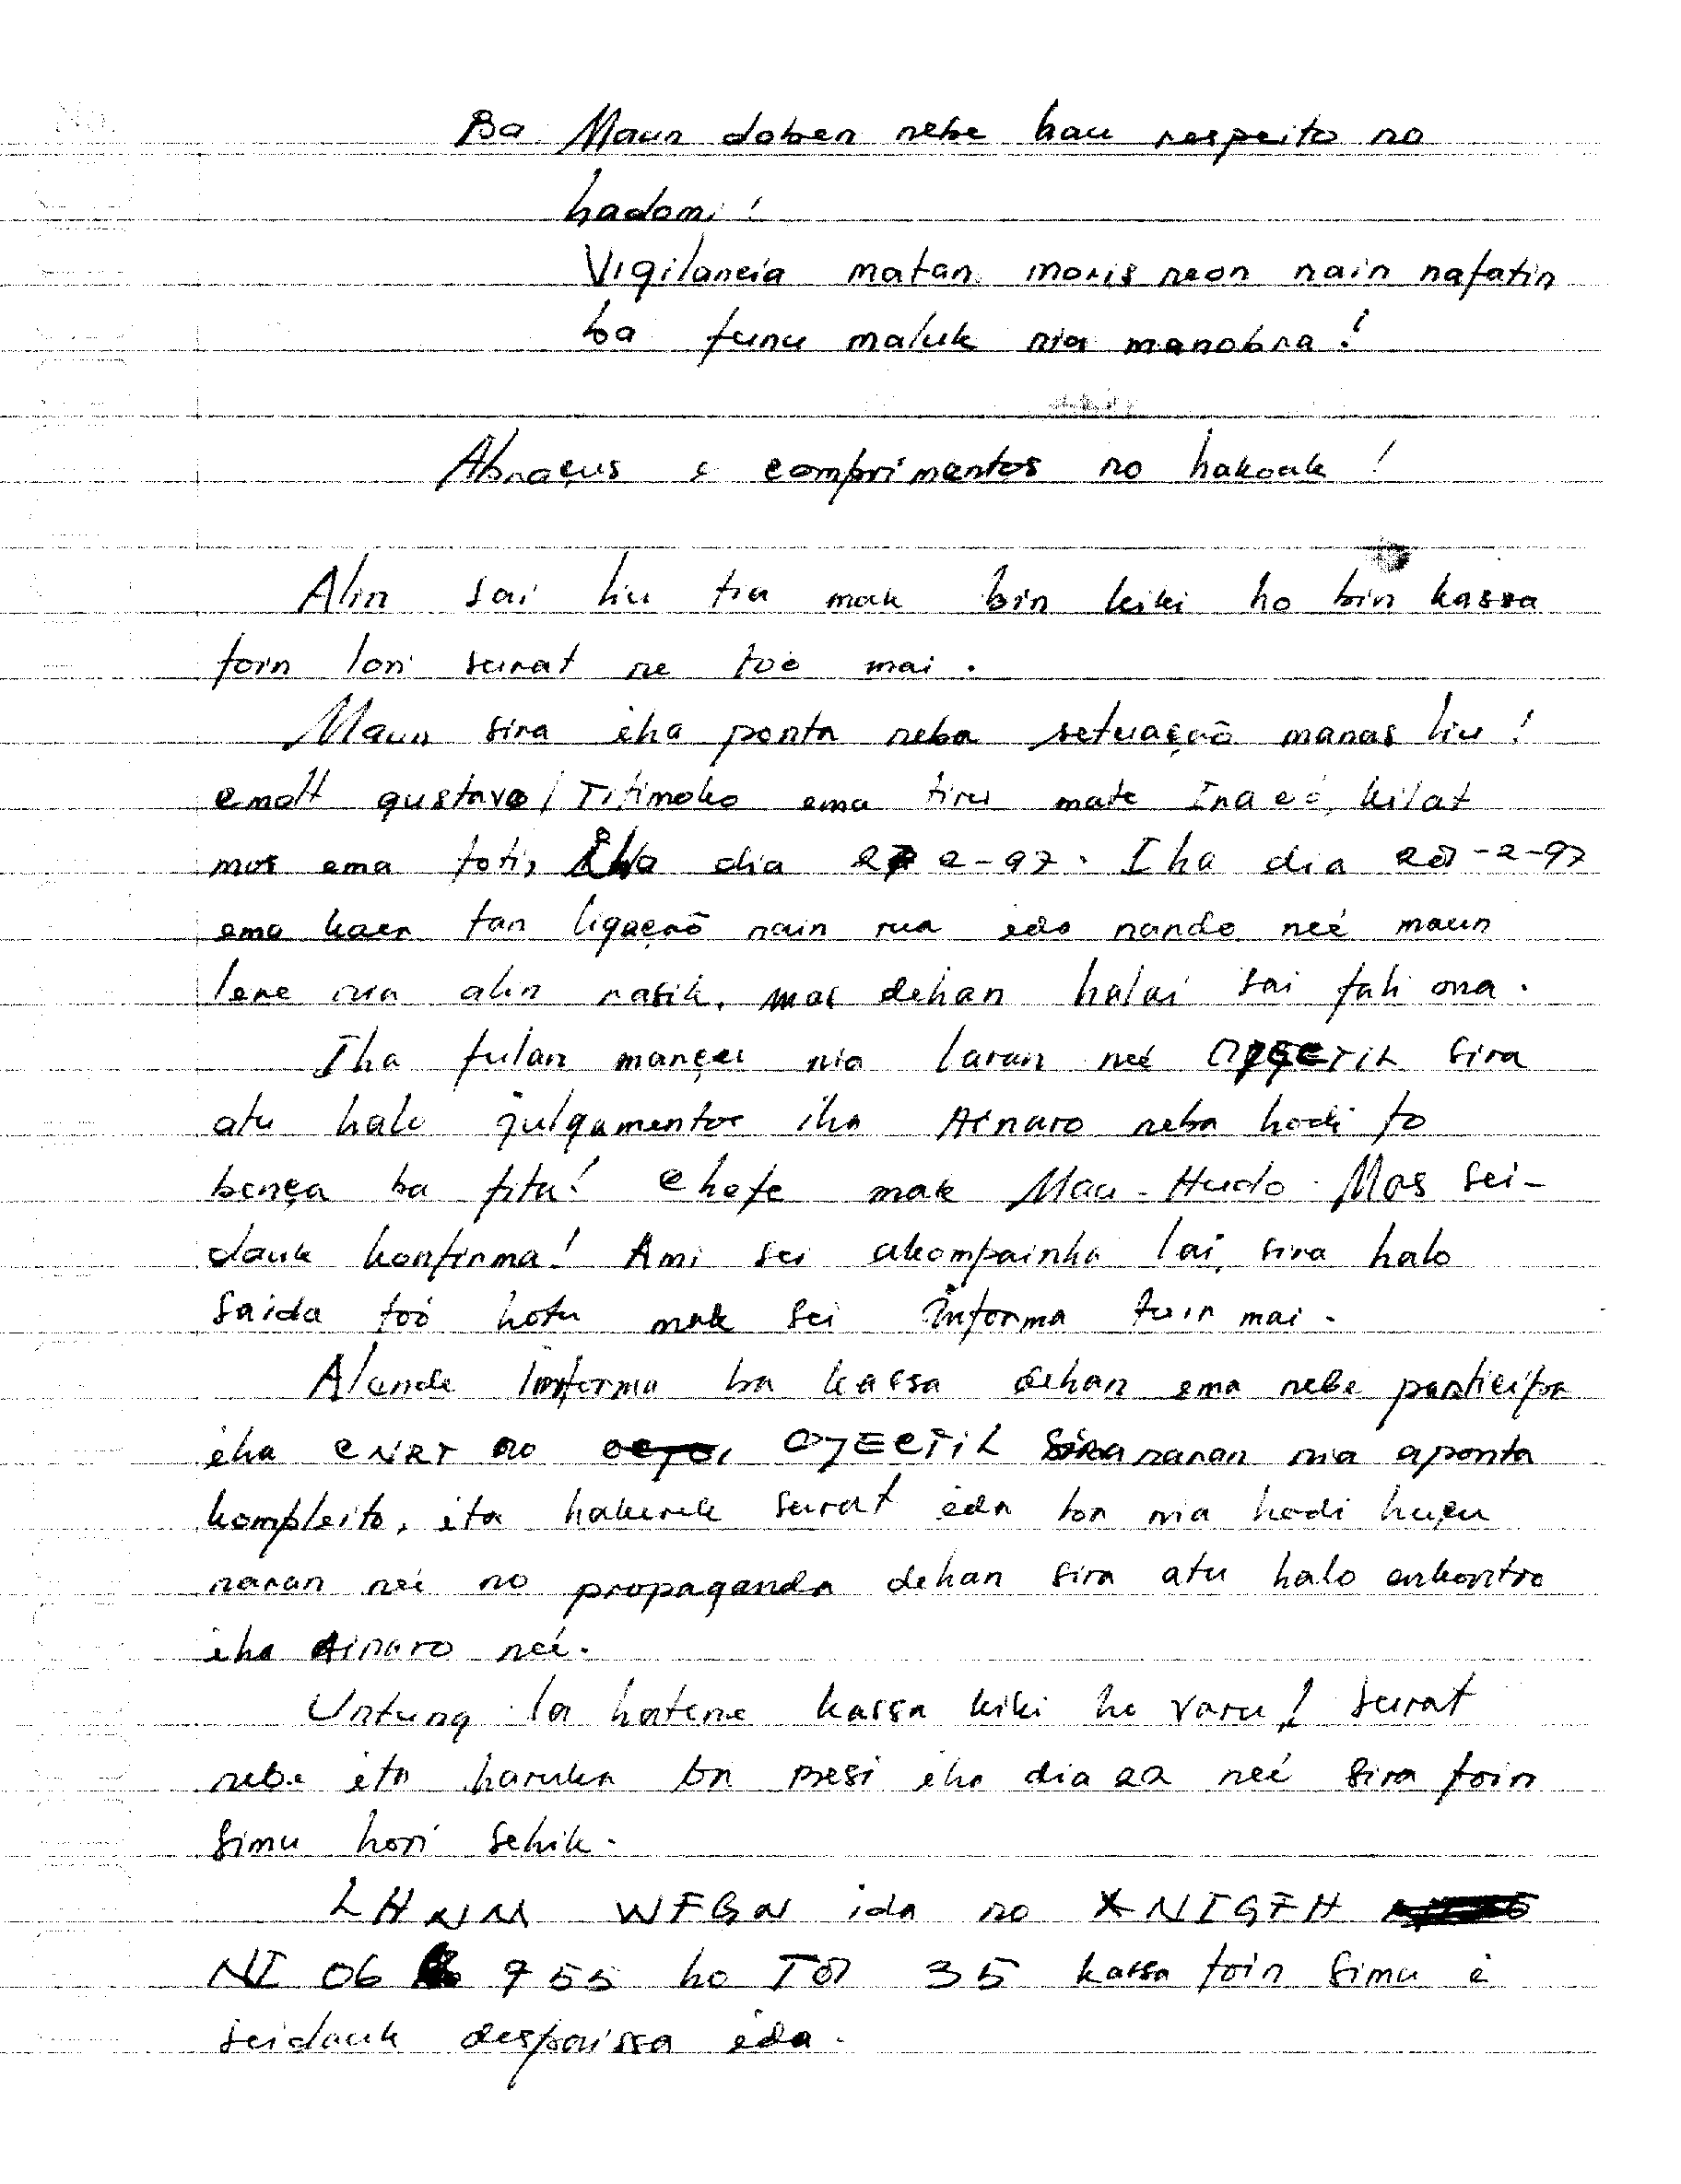 Ba Maun doben nebe hau respeito no
hadomi!
Vigilancia matan moris neon nain nafatin
ba funu maluk nia manobra!
Abraçus e comprimentos no hakoak!
Alin sai liu tia mak bin kiki ho bin kassa
foin lori surat ne too mai.
Maun sira iha ponta neba setuaçaõ manas liu!
gustavo/Titimoko ema tiru mate kilat
mos ema foti, iha dia 2-97. Iha dia -2-97
ema kaer tan ligaçaõ nain rua ida nando neé maun
lere nia alin rasik, mas dehan halai sai fali ona.
Iha fulan marçu nia laran neé OJECTIL sira
atu halo julgamentos iha Ainaro neba hodi fo
bença ba fitu! Chefe mak Mau-Hudo. Mas sei-
dauk konfirma! Ami sei akompainha lai, sira halo
saida toó hotu mak sei informa tuir mai.
informa ba kassa dehan ema nebe participa
iha CNRT no OJECTIL naran nia aponta
kompleito, ita hakerek surat ida ba nia hodi huçu
naran neé no propaganda dehan sira atu halo enkontro
iha Ainaro neé.
Untung la hatene kassa kiki ho varu! surat
nebe ita haruka ba presi iha dia 22 neé sira foin
simu hori sehik.
LHNM WFGN ida no XNIGFH
NI 06 955 ho 35 kassa foin simu e
seidauk despaissa ida.